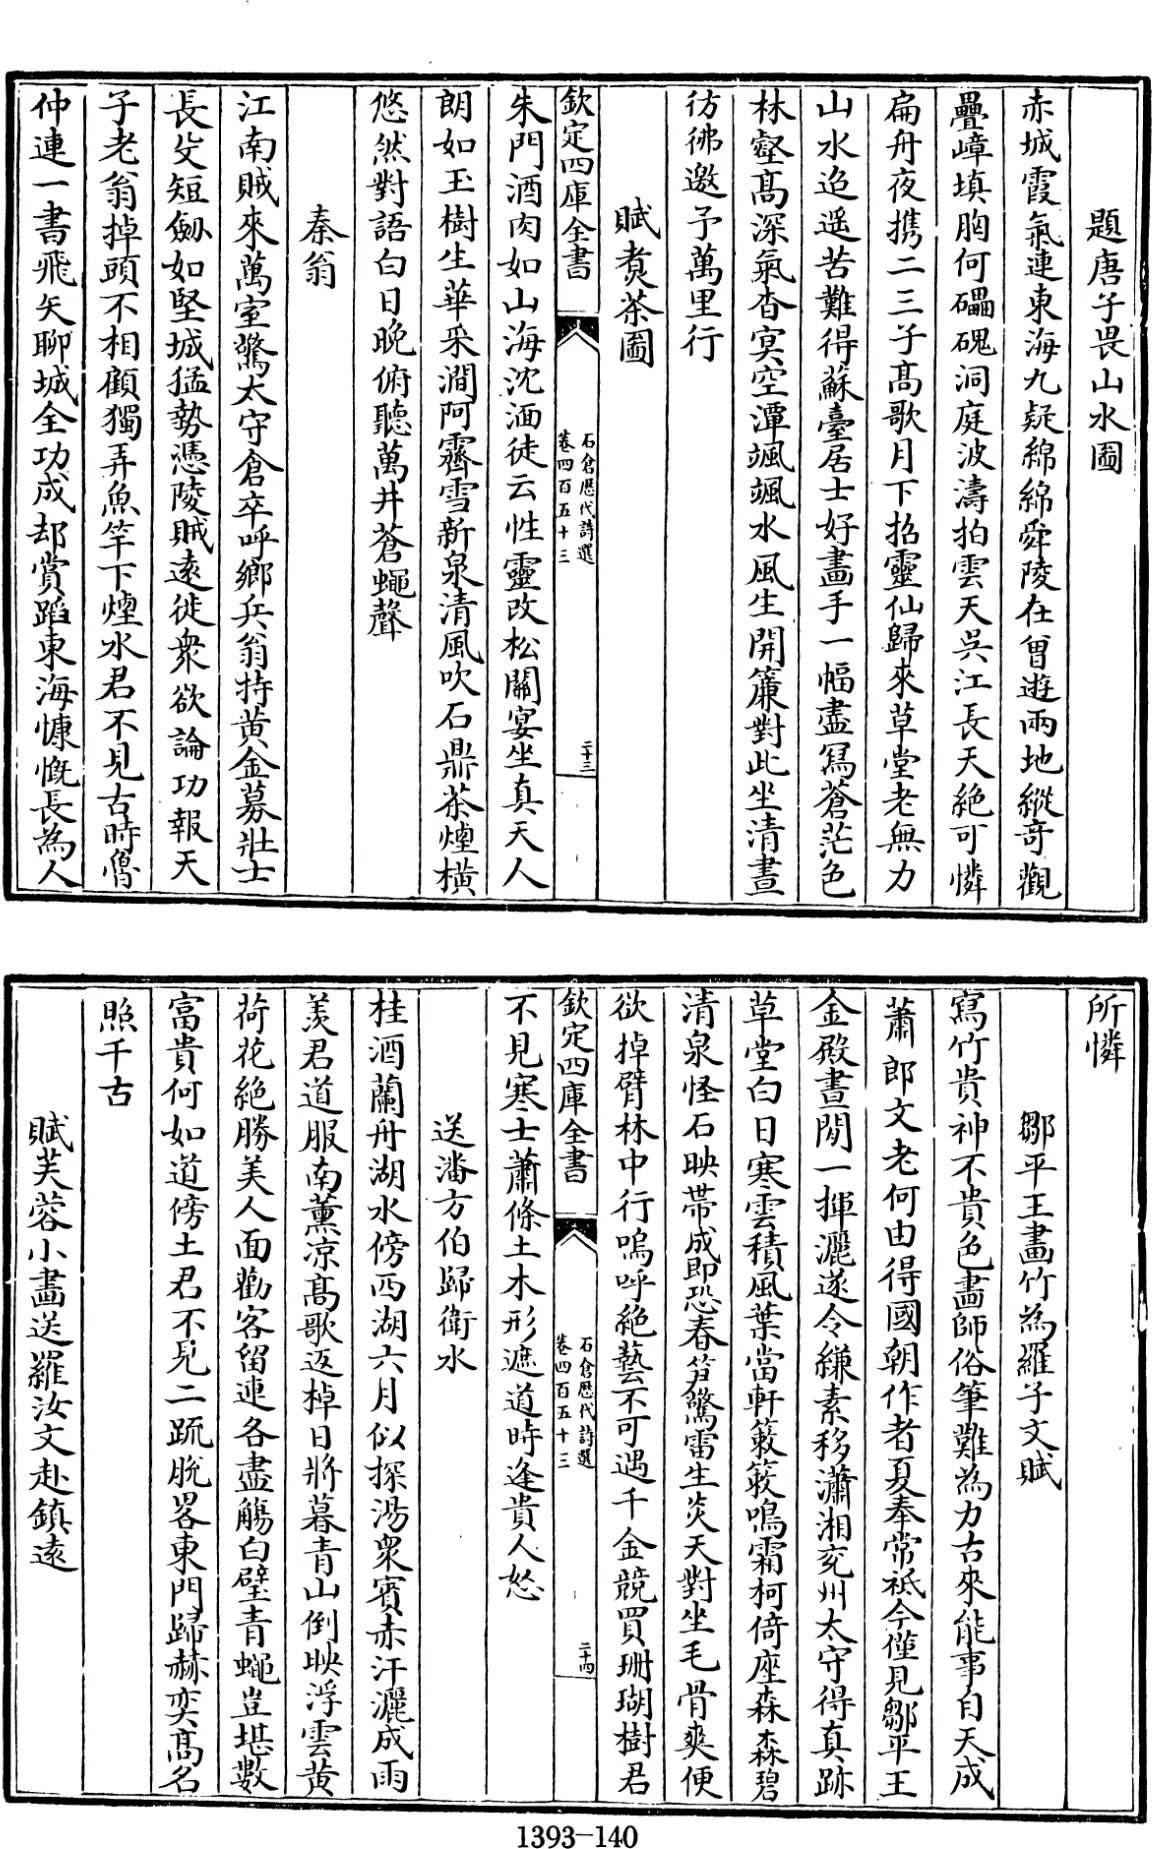 題唐子畏山水圖
赤城霞氣連東海九疑綿綿舜陵在曾遊兩地縱奇觀
疊嶂填胸何礧磈洞庭波濤拍雲天吳江長天絶可憐
扁舟夜携二三子髙歌月下招靈仙歸來草堂老無力
山水迢遥苦難得蘇臺居士好畫手一幅盡冩蒼茫色
林壑髙深氣杳冥空潭颯颯水風生開簾對此坐清晝
彷彿邀予萬里行
賦煑茶圖
欽定四庫全書
石倉歷代詩選
卷四百五十三
二十三
朱門酒肉如山海沈湎徒云性靈改松關宴坐真天人
朗如玉樹生華采澗阿霽雪新泉清風吹石鼎茶煙橫
悠然對語白日晩俯聽萬井蒼蠅聲
秦翁
江南賊來萬室驚太守倉卒呼鄉兵翁持黄金募壯士
長殳短劒如堅城猛勢憑陵賊逺徙衆欲論功報天
子老翁掉頭不相顧獨弄魚竿下煙水君不見古時魯
仲連一書飛矢聊城全功成却賞蹈東海慷慨長為人
所憐
鄒平王畫竹為羅子文賦
寫竹貴神不貴色畫師俗筆難為力古來能事自天成
蕭郎文老何由得國朝作者夏奉常祗今僅見鄒平王
金殿晝閒一揮灑遂令縑素移瀟湘兖州太守得真跡
草堂白日寒雲積風葉當軒簌簌鳴霜柯倚座森森碧
清泉怪石映帶成即恐春笋驚雷生炎天對坐毛骨爽便
欲掉臂林中行嗚呼絶藝不可遇千金競買珊瑚樹君
欽定四庫全書
石倉歷代詩選
卷四百五十三
二十四
不見寒士蕭條土木形遮道時逢貴人怒
送潘方伯歸衛水
桂酒蘭舟湖水傍西湖六月似探湯衆賓赤汗灑成雨
羡君道服南薰凉髙歌返棹日將暮青山倒映浮雲黄
荷花絶勝美人面勸客留連各盡觴白璧青蠅豈堪數
富貴何如道傍土君不見二疏脱畧東門歸赫奕髙名
照千古
賦芙蓉小畫送羅汝文赴鎮逺
1393-140